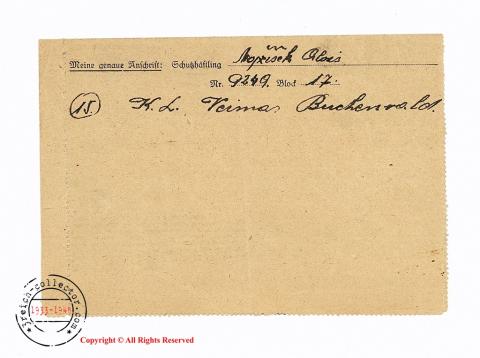 Meine genaue Anschrift: Schutzhäftling Alois
Nr. 9249. Block 17.
15. K. L. Veimar Buchenwald.
3reich-collector.com
1933-1945
Copyright © All Rights Reserved